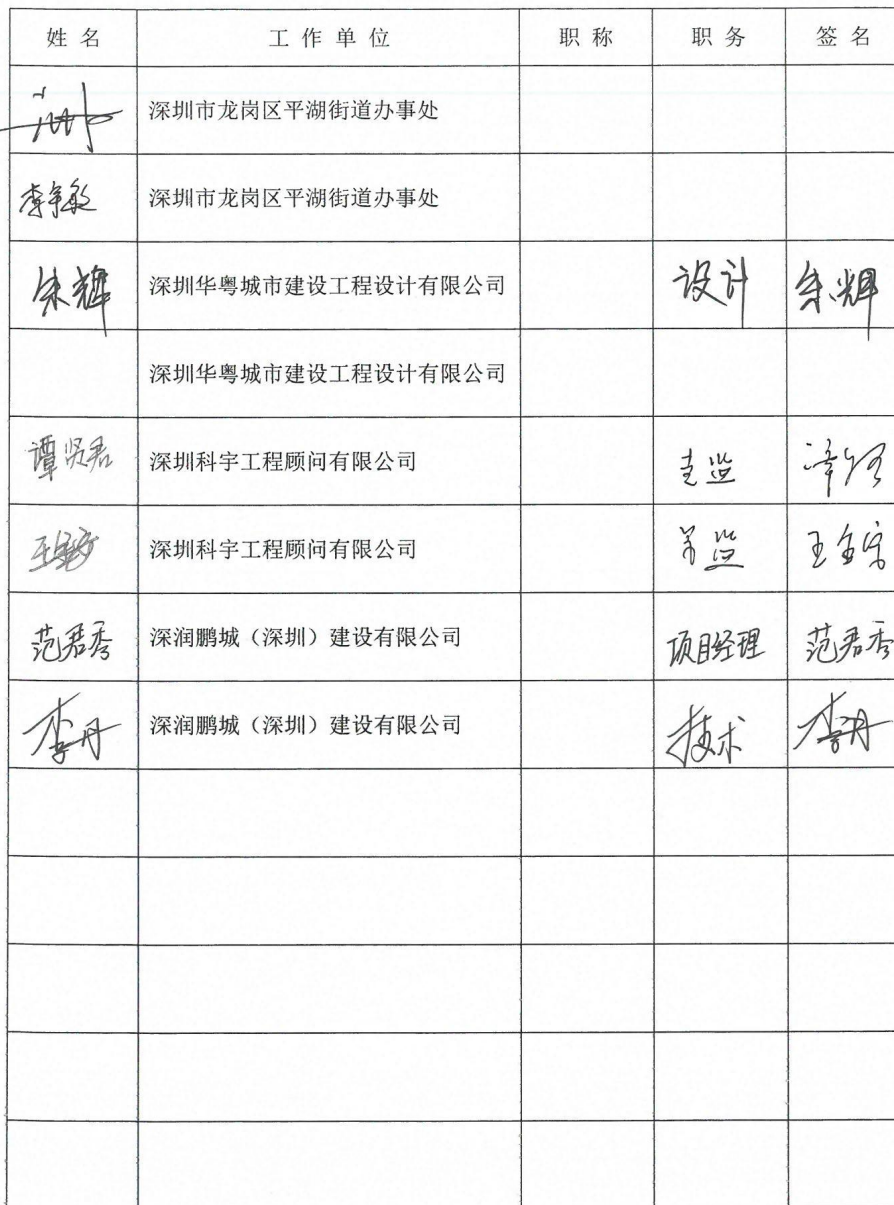 姓名 工作单位 职称 职务 签名
深圳市龙岗区平湖街道办事处
深圳市龙岗区平湖街道办事处
朱辉 深圳华粤城市建设工程设计有限公司 设计 朱辉
深圳华粤城市建设工程设计有限公司
谭贤君 深圳科宇工程顾问有限公司
深圳科宇工程顾问有限公司
范君秀 深润鹏城（深圳）建设有限公司 项目经理 范君秀
李丹 深润鹏城（深圳）建设有限公司 技术 李丹